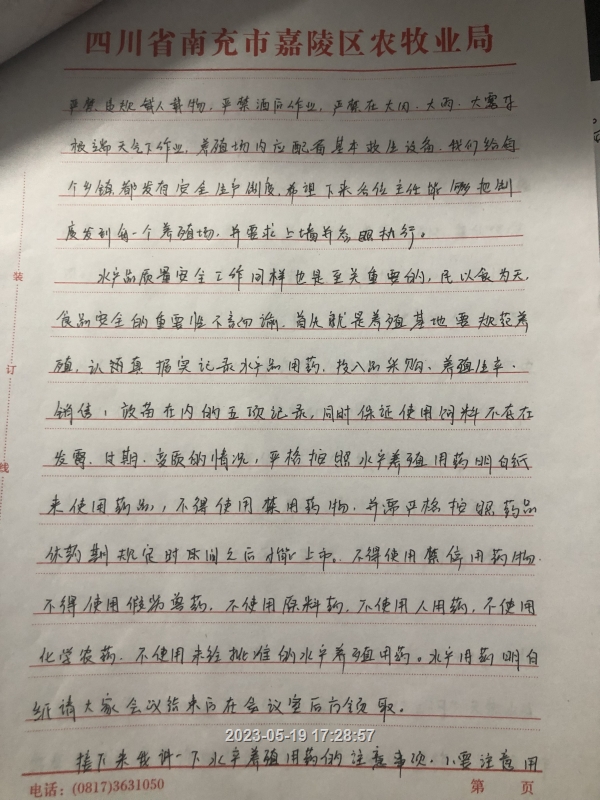 四川省南充市嘉陵区农牧业局
严禁违规载人载物，严禁酒后作业，严禁在大风、大雨、大雾等
极端天气下作业，养殖场内应配备基本救生设备，我们给每
个乡镇都发有安全生产制度，希望下来各位主任能够把制
度发到每一个养殖场，并要求上墙并参照执行。
水产品质量安全工作同样也是至关重要的，民以食为天，
食品安全的重要性不言而喻，首先就是养殖基地要规范养
殖，认领真据实记录水产品用药，投入品采购、养殖生产、
销售，放苗在内的五项记录，同时保证使用饲料不存在
发霉、过期、变质的情况，严格按照水产养殖用药明白纸
来使用药品，不得使用禁用药物，并需严格按照药品
休药期规定时间之后才能上市。不得使用禁停用药物，
不得使用假劣兽药，不使用原料药，不使用人用药，不使用
化学农药，不使用未经批准的水产养殖用药。水产用药明白
纸请大家会议结束后在会议室后方领取。
接下来我讲一下水产养殖用药的注意事项，1、要注意用
2023-05-19 17:28:57
电话：(0817)3631050
第 页
装
订
线